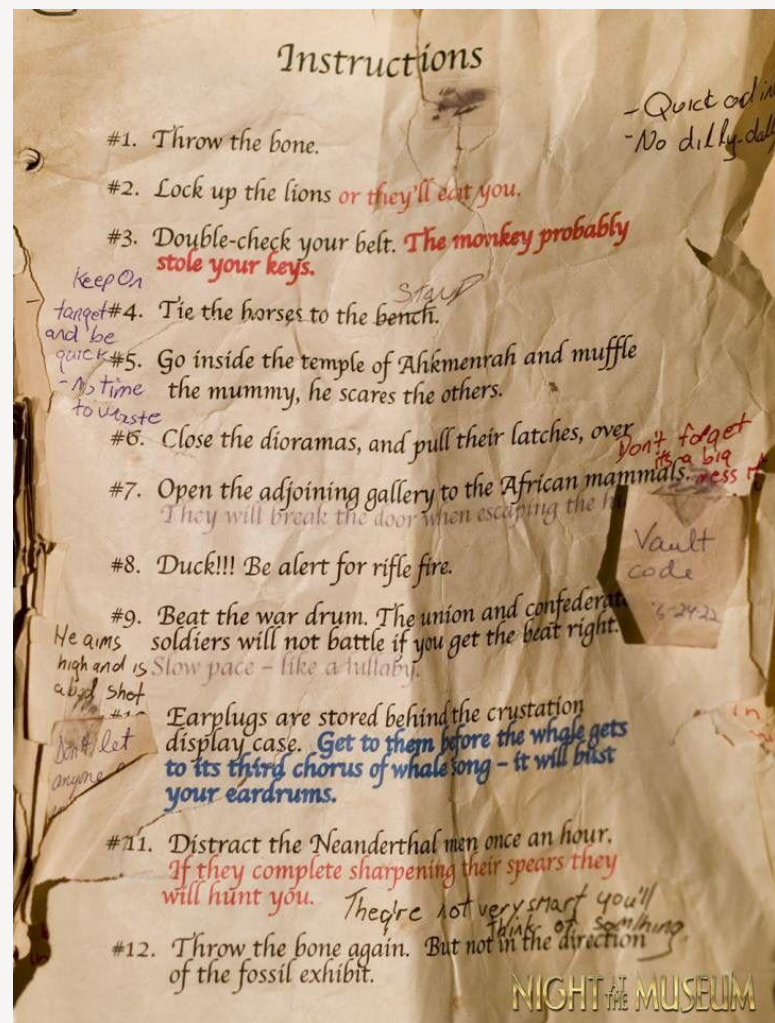 Instructions
- Quick
- No dilly-dally
#1. Throw the bone.
#2. Lock up the lions or they'll eat you.
#3. Double-check your belt. The monkey probably
stole your keys.
Keep On
target
and be
quick
- No time
to waste
#4. Tie the horses to the bench.
#5. Go inside the temple of Ahkmenrah and muffle
the mummy, he scares the others.
#6. Close the dioramas, and pull their latches, over
Don't forget
its a big
mess if
#7. Open the adjoining gallery to the African mammals.
They will break the door when escaping the
Vault
code
#8. Duck!!! Be alert for rifle fire.
#9. Beat the war drum. The union and confederat
soldiers will not battle if you get the beat right.
Slow pace – like a lullaby.
He aims
high and is
a bad shot
Don't let
anyone
Earplugs are stored behind the crustation
display case. Get to them before the whale gets
to its third chorus of whale song – it will bust
your eardrums.
#11. Distract the Neanderthal men once an hour.
If they complete sharpening their spears they
will hunt you.
They're not very smart you'll
think of somthing
#12. Throw the bone again. But not in the direction
of the fossil exhibit.
NIGHT AT THE MUSEUM